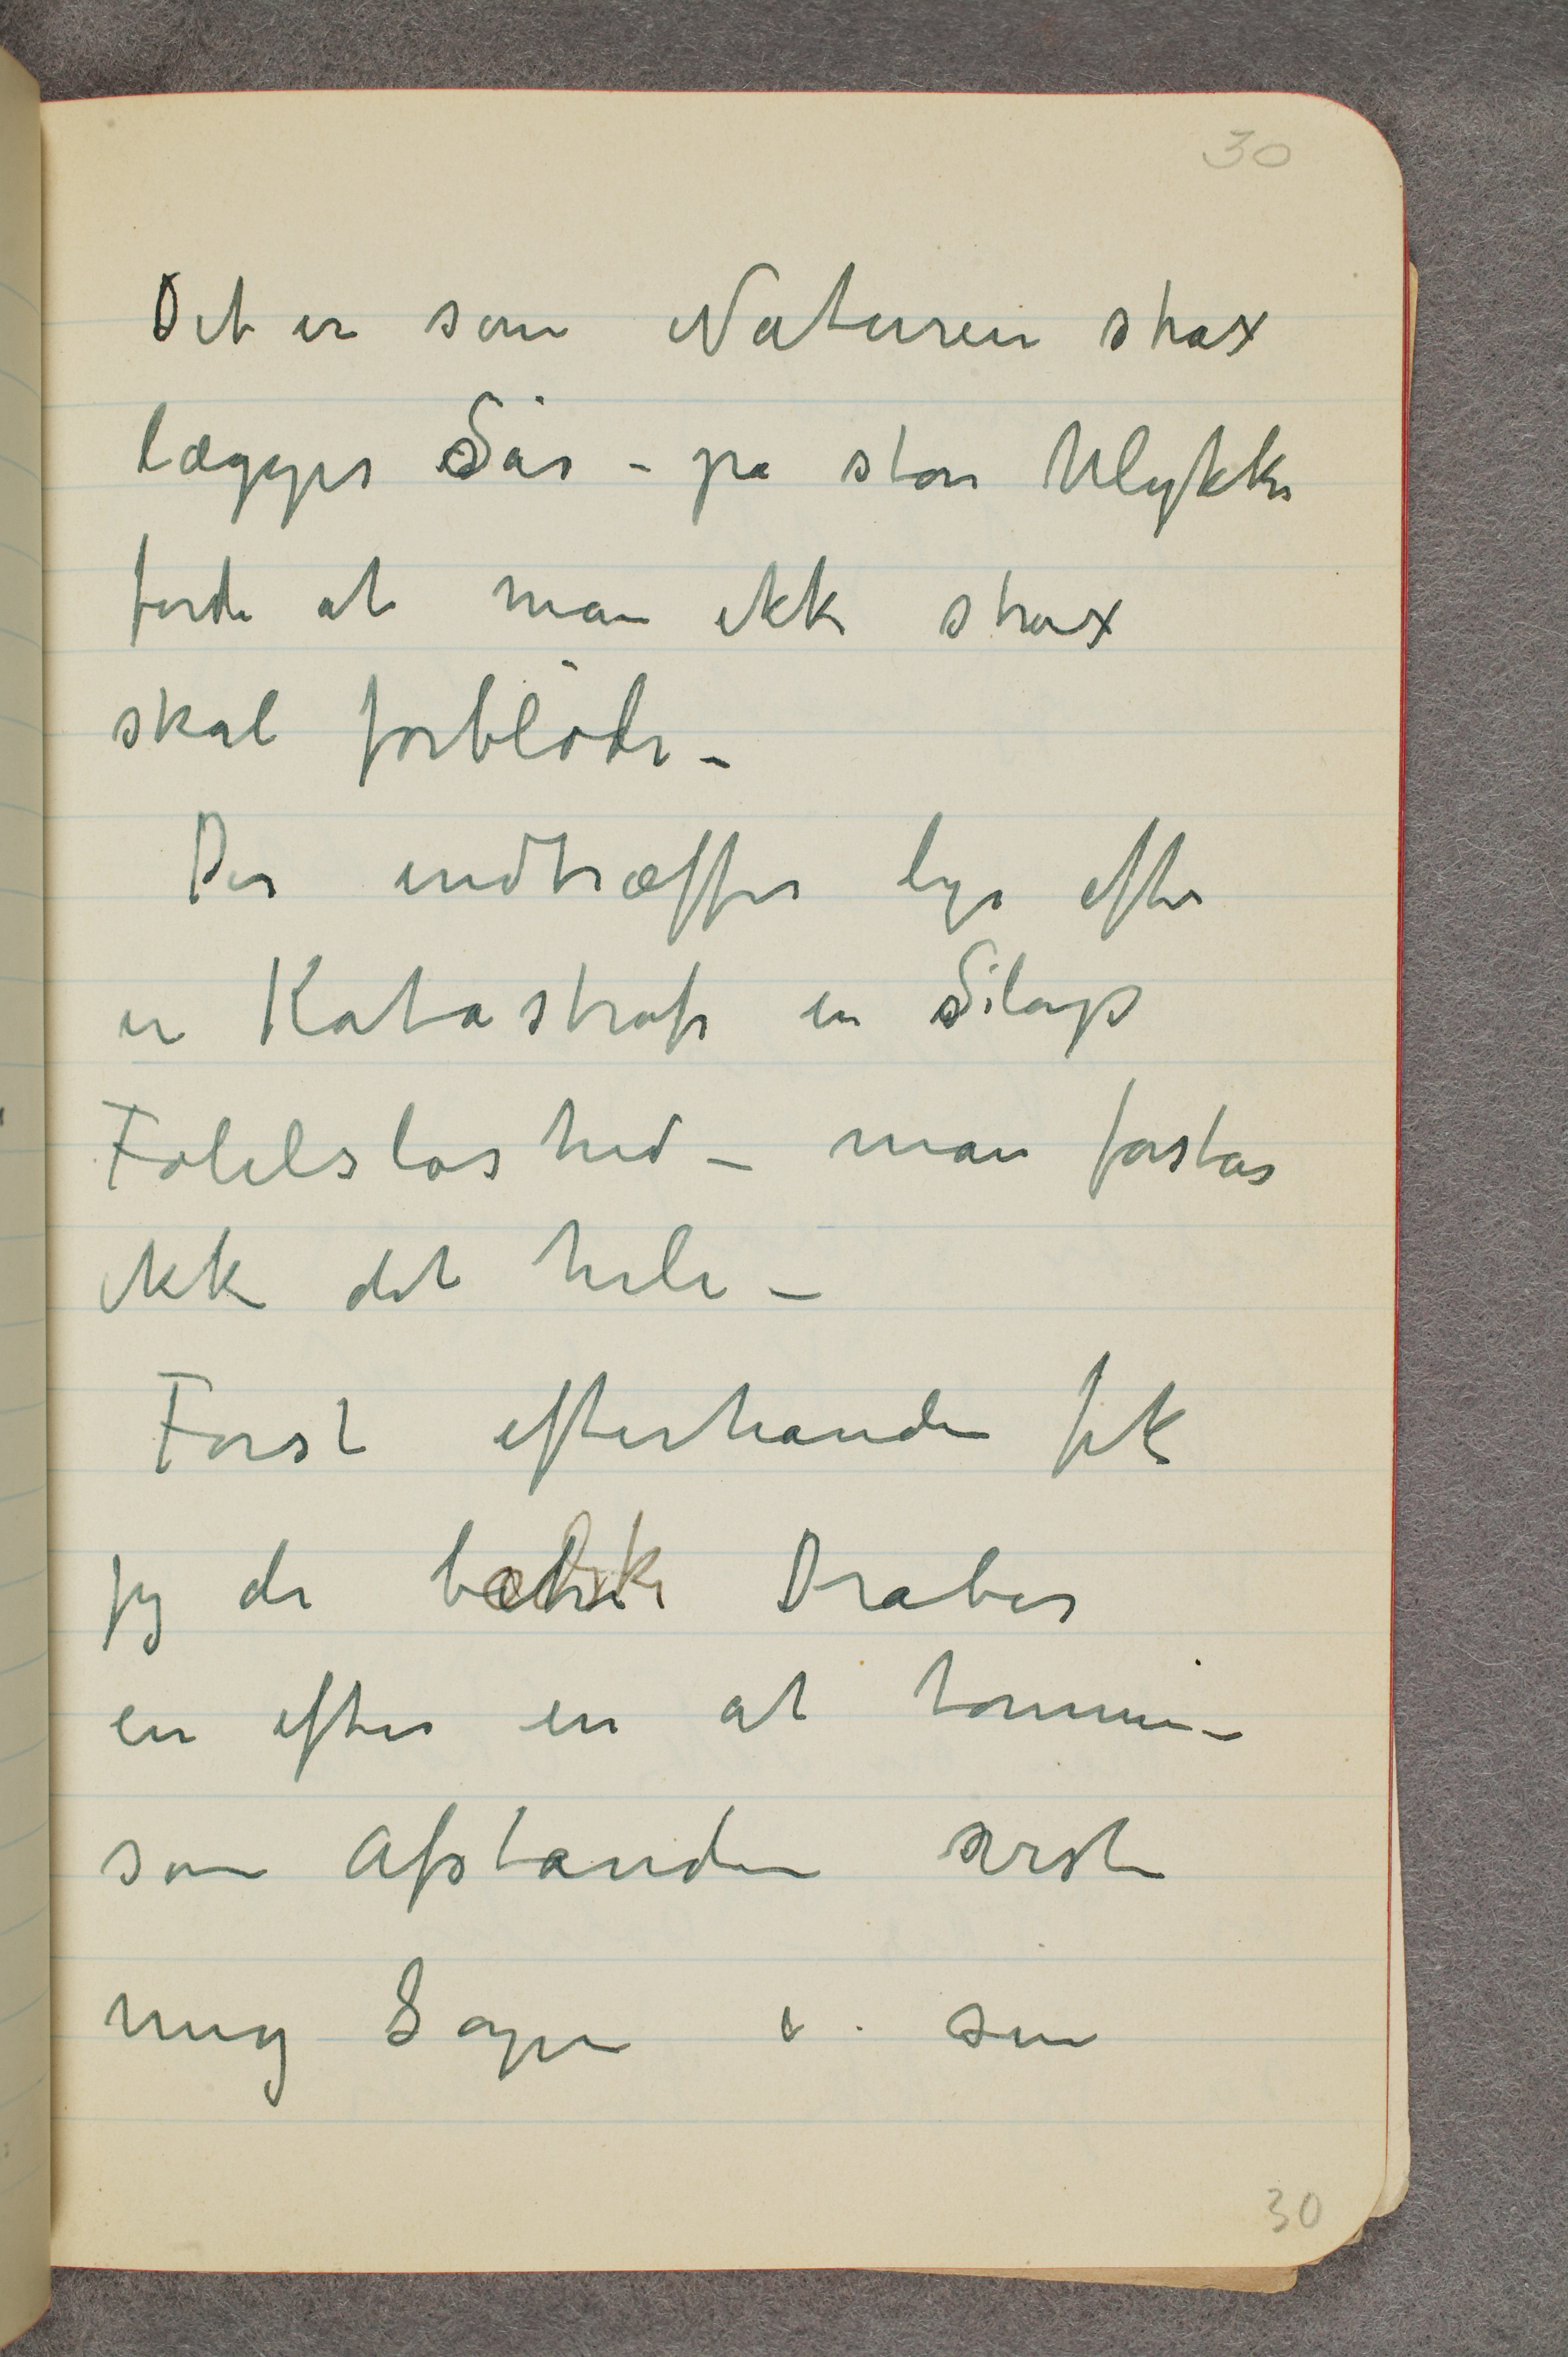 30
Det er som Naturen strax
lægger Sår – på store Ulykker
fordi at man ikke strax
skal forblöde –
Der indtræffer lige efter
en Katastrofe en Slags
Følelsløshed – man forstår
ikke det hele –
Først efterhånden fik
jeg de bedske Dråber
en efter en at tømme –
som Afstanden viste
mig Sagen i sin
30